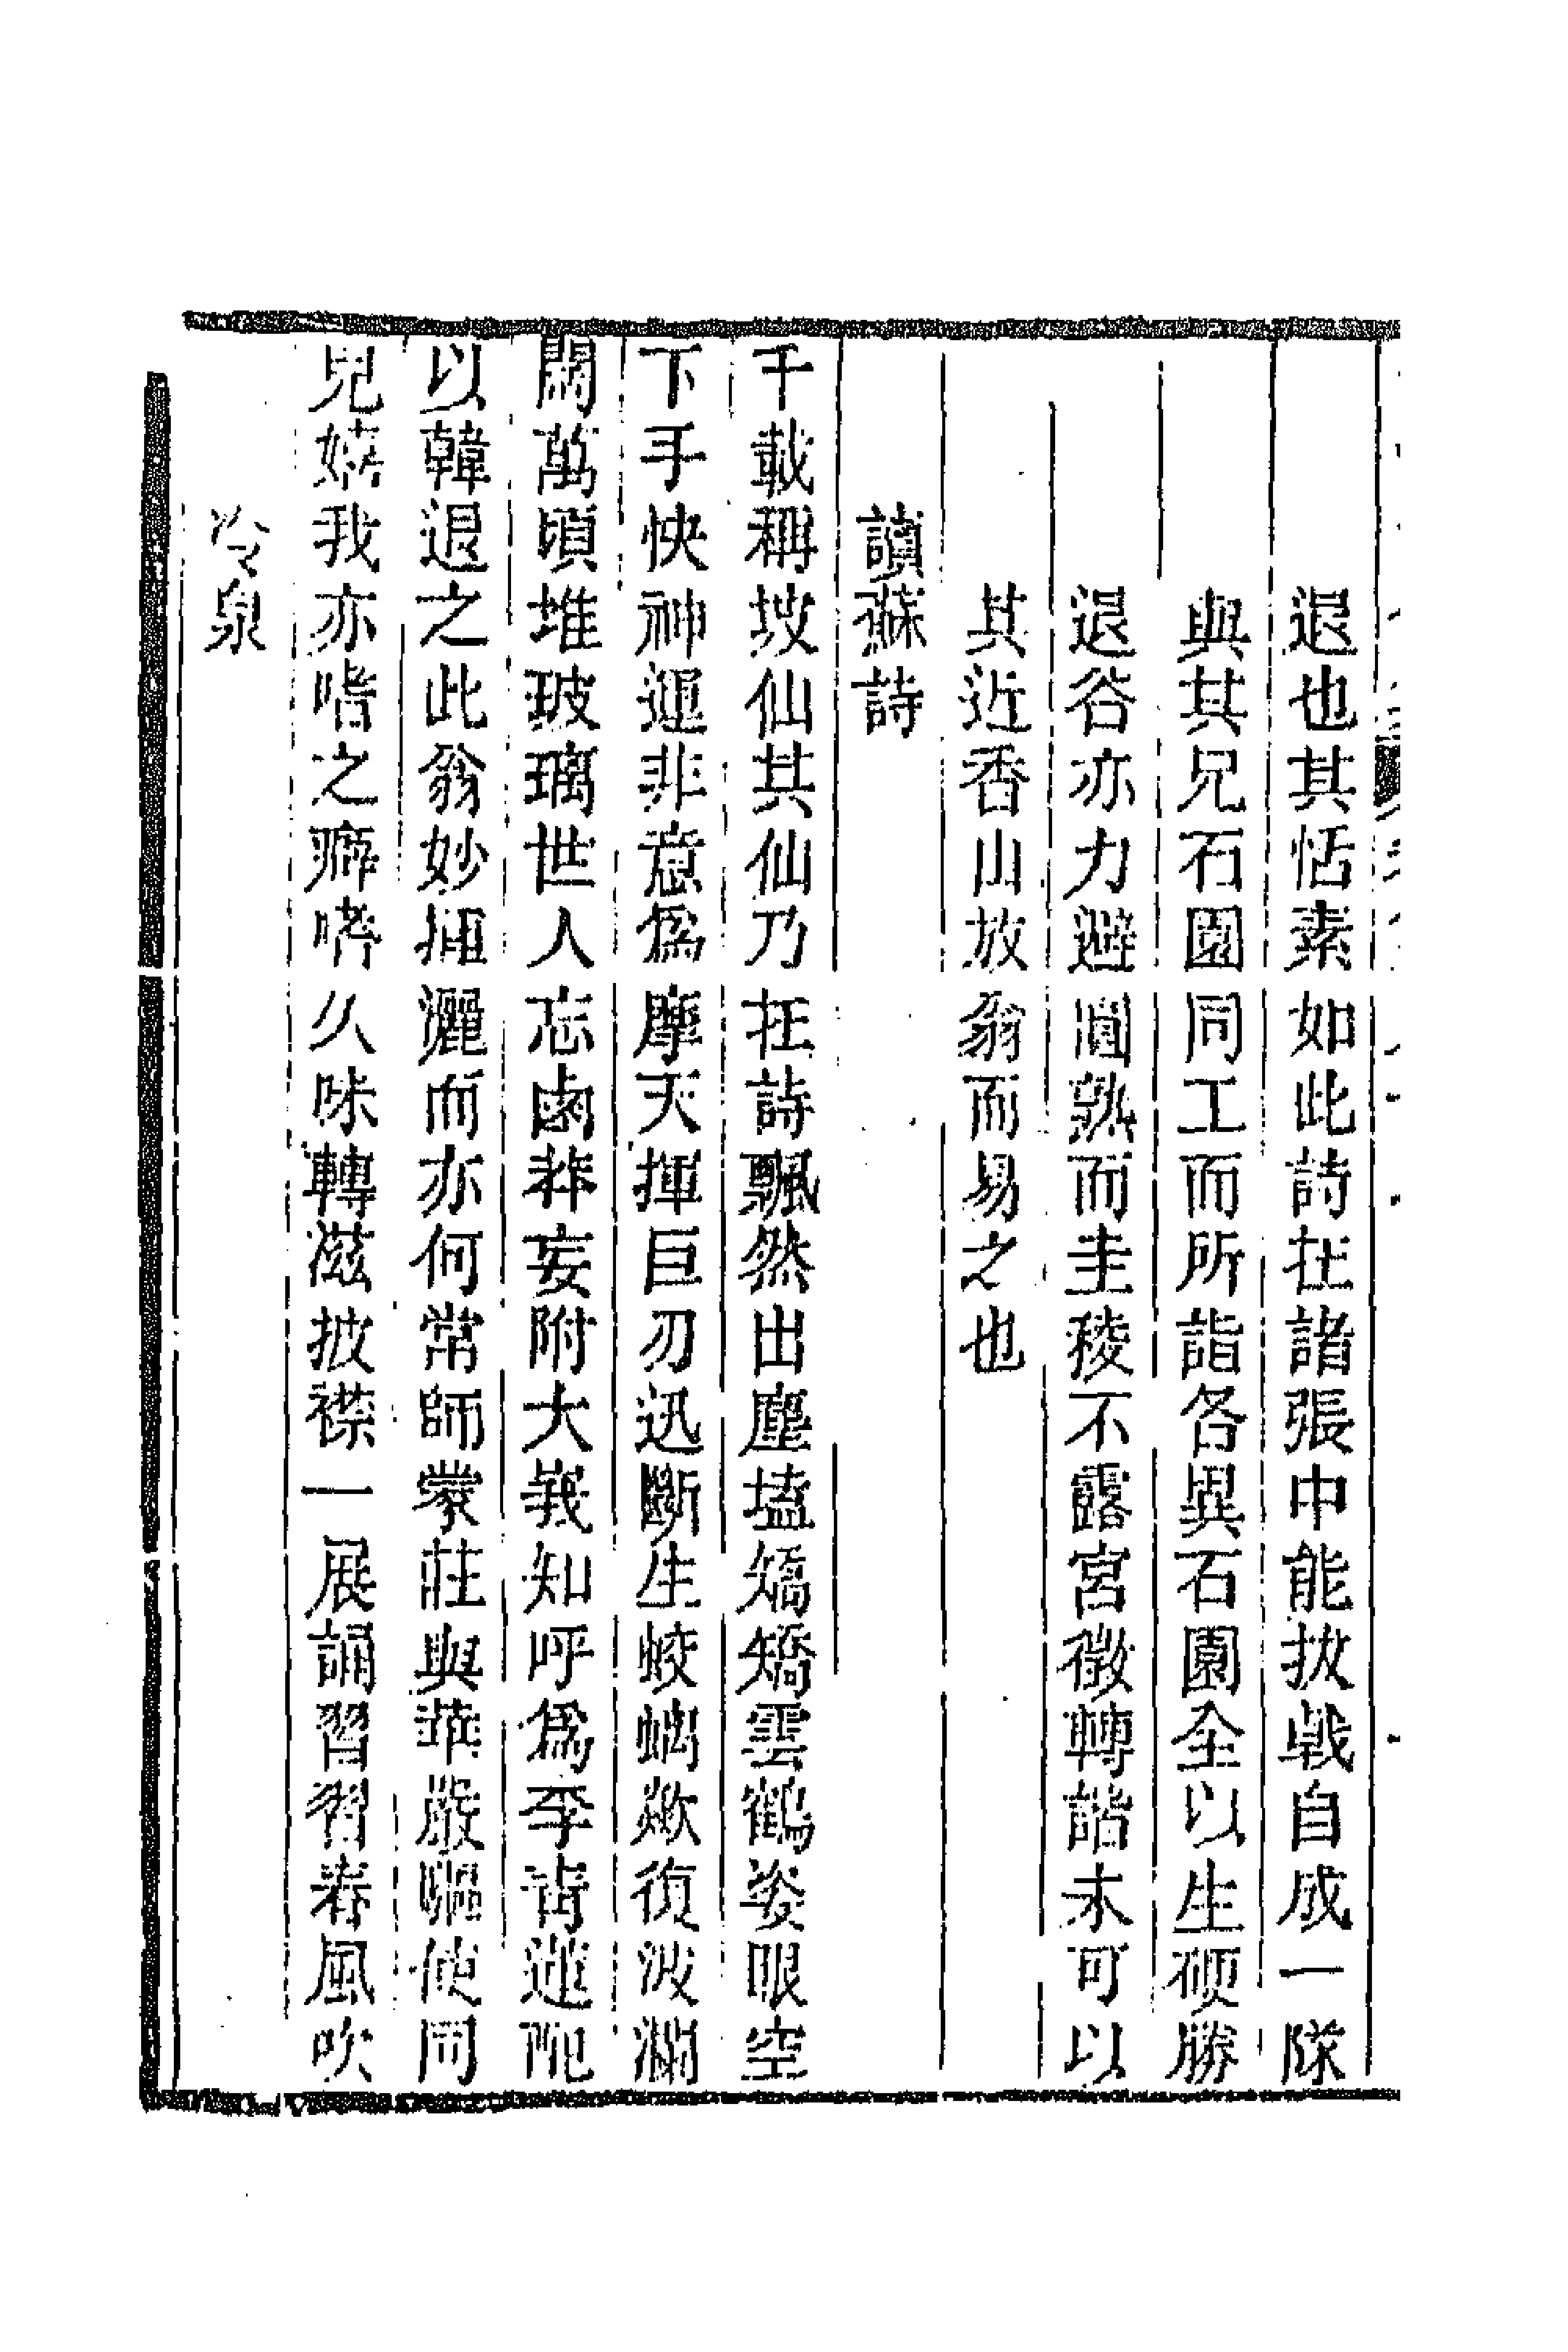 退也其恬素如此詩在諸張中能拔戟自成一隊
與其兄石園同工而所詣各異石園全以生硬勝
退谷亦力避圓熟而圭稜不露宮徵轉諧未可以
其近香山放翁而易之也
讀蘇詩
千載稱坡仙其仙乃在詩飄然出塵壒矯矯雲鶴姿眼空
下手快神運非意為摩天揮巨刃迅斷生蛟螭歘復波瀾
闊萬頃堆玻璃世人忘鹵莽妄附大峩知呼為李青蓮配
以韓退之此翁妙揮灑而亦何常師蒙莊與華嚴驅使同
兒嬉我亦嗜之癖嚌久味轉滋披襟一展誦習習春風吹
冷泉